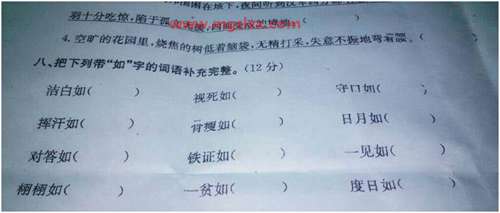 到十分吃惊,陷于孤
4.空旷的花园里,烧焦的树低着脑袋,无精打采,失意不振地弯着腰。(        )
八、把下列带“如”字的词语补充完整。(12分)
洁白如(        ) 视死如(        ) 守口如(        )
挥汗如(        ) 骨瘦如(        ) 日月如(        )
对答如(        ) 铁证如(        ) 一见如(        )
栩栩如(        ) 一贫如(        ) 度日如(        )